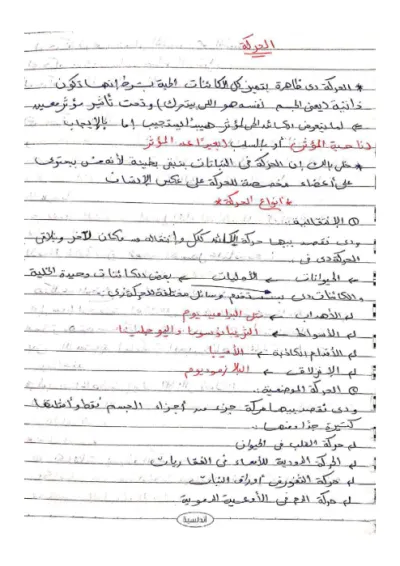 الحركة
* الحركة دى ظاهرة بتميز كل الكائنات الحية بشرط إنها تكون
ذاتية (يعنى الجسم نفسه هو اللى بيتحرك) وتحت تأثير مؤثر معين
لما يتعرض الكائن الحى لمؤثر هيبدأ يستجيب إما بالإيجاب
(ناحية المؤثر) أو بالسلب (بعيد عن المؤثر)
* خلى بالك إن الحركة فى النباتات بتبقى بطيئة لأنه مش بيحتوى
على أعضاء مخصصة للحركة على عكس الإنسان
* أنواع الحركة *
① الإنتقالية
ودى نقصد بيها حركة الكائن ككل وإنتقاله من مكان لآخر وبنلاقى
الحركة دى فى :
← الحيوانات ← الأوليات ← بعض الكائنات وحيدة الخلية
والكائنات دى بتستخدم وسائل مختلفة للحركة زى
الأهداب ← زى البراميسيوم
الأسواط ← التريبانوسوما واليوجلينا
الأقدام الكاذبة ← الأميبا
الإنزلاق ← البلازموديوم
② الحركة الموضعية :
ودى نقصد بيها حركة جزء من أجزاء الجسم فقط وأمثلتها
كتيرة جدا ومنها :
حركة القلب فى الحيوان
الحركة الدودية للأمعاء فى الفقاريات
حركة الثغور فى أوراق النبات
حركة الدم فى الأوعية الدموية
أندلسية